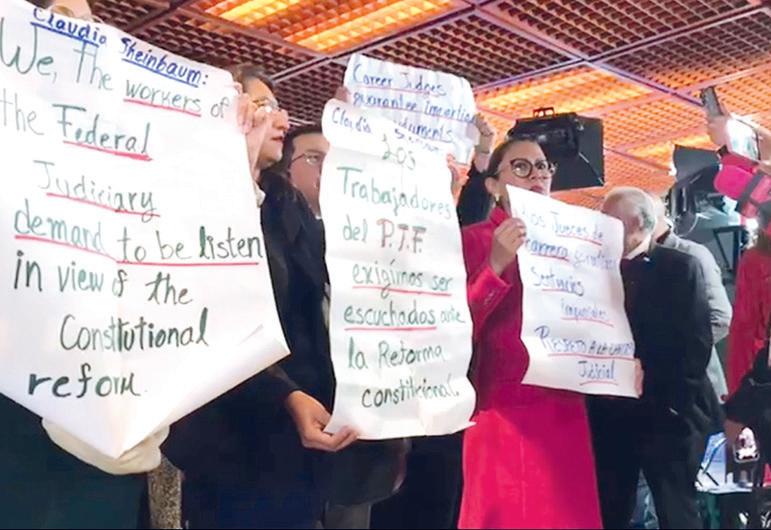 Claudia Sheinbaum:
We, the workers of
the Federal
Judiciary
demand to be listen
in view of the
Constitutional
reform.
Career Judges
guarantee impartial
Claudia
Los
Trabajadores
del P.J.F.
exigimos ser
escuchados ante
la Reforma
constitucional.
Los Jueces de
carrera
Sentencias
imparciales
RESPETO A LA CARRERA
Judicial